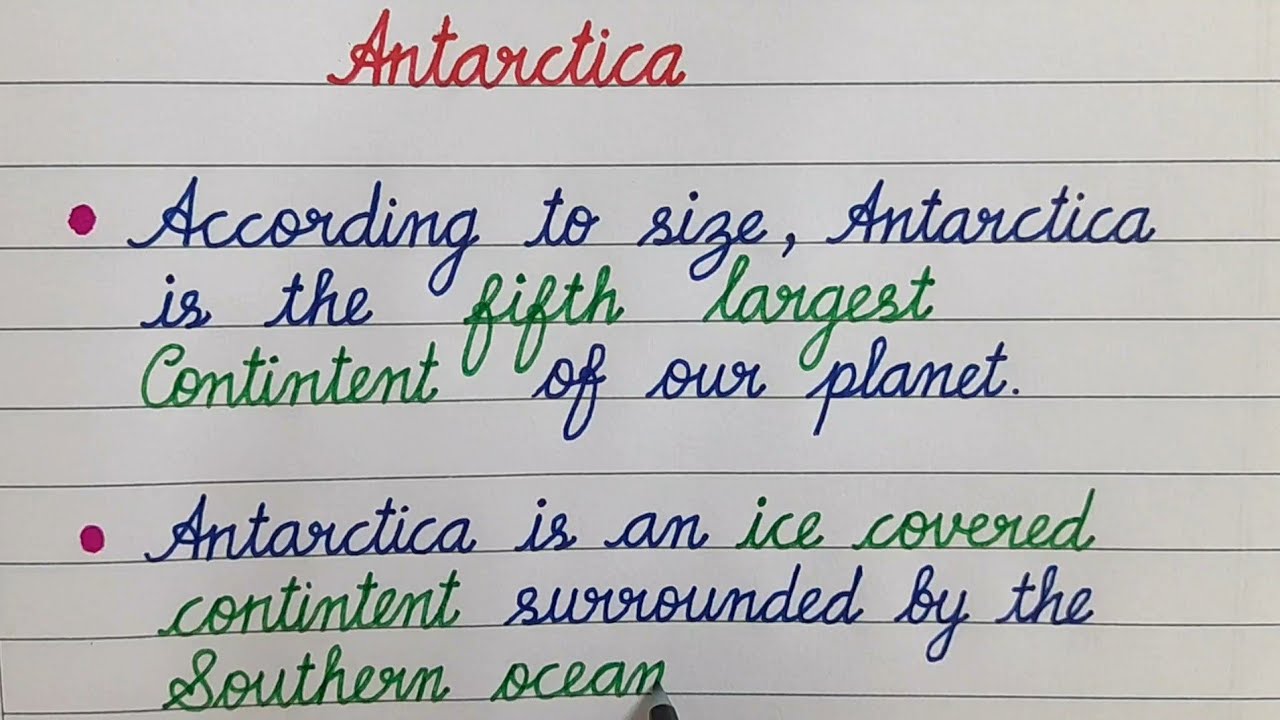 Antarctica
• According to size, Antarctica
is the fifth largest
Contintent of our planet.
• Antarctica is an ice covered
contintent surrounded by the
Southern ocean